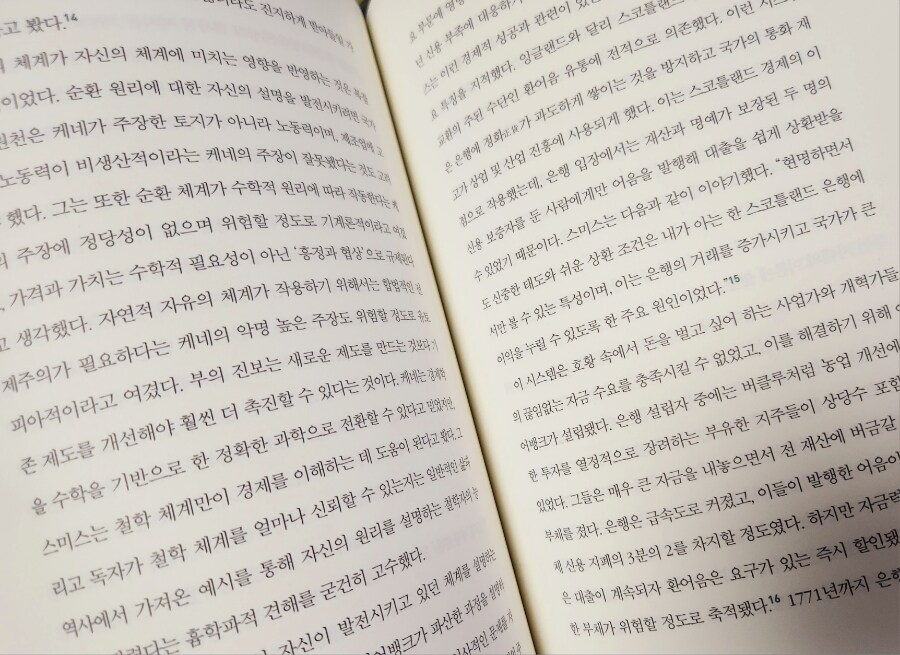 고 봤다.14
체계가 자신의 체계에 미치는 영향을 반영하는 것은
이었다. 순환 원리에 대한 자신의 설명을 발전시키려면
원천은 케네가 주장한 토지가 아니라 노동력이며, 제조업에
노동력이 비생산적이라는 케네의 주장이 잘못됐다는 것도
했다. 그는 또한 순환 체계가 수학적 원리에 따라 작동한다는
의 주장에 정당성이 없으며 위험할 정도로 기계론적이라고
, 가격과 가치는 수학적 필요성이 아닌 '흥정과 협상'으로
고 생각했다. 자연적 자유의 체계가 작용하기 위해서는 합법적인
제주의가 필요하다는 케네의 악명 높은 주장도 위험할 정도로
피아적이라고 여겼다. 부의 진보는 새로운 제도를 만드는 것보다 기
존 제도를 개선해야 훨씬 더 촉진할 수 있다는 것이다. 케네는 경제학
을 수학을 기반으로 한 정확한 과학으로 전환할 수 있다고 믿었지만
스미스는 철학 체계만이 경제를 이해하는 데 도움이 된다고 봤다. 그
리고 독자가 철학 체계를 얼마나 신뢰할 수 있는지는 일반적인 삶과
역사에서 가져온 예시를 통해 자신의 원리를 설명하는 철학자의 능
다는 흄학파적 견해를 굳건히 고수했다.
자신이 발전시키고 있던 체계를 설명하는
어뱅크가 파산한 과정을 설명하
요 부문에
던 신용 부족에 대응하기
스는 이런 경제적 성공과 관련이 있
요 특징을 지적했다. 잉글랜드와 달리 스코틀랜드
교환의 주된 수단인 환어음 유통에 전적으로 의존했다. 이런 시스
은 은행에 정화正貨가 과도하게 쌓이는 것을 방지하고 국가의 통화 재
고가 상업 및 산업 진흥에 사용되게 했다. 이는 스코틀랜드 경제의 이
점으로 작용했는데, 은행 입장에서는 재산과 명예가 보장된 두 명의
신용 보증자를 둔 사람에게만 어음을 발행해 대출을 쉽게 상환받을
수 있었기 때문이다. 스미스는 다음과 같이 이야기했다. “현명하면서
도 신중한 태도와 쉬운 상환 조건은 내가 아는 한 스코틀랜드 은행에
서만 볼 수 있는 특성이며, 이는 은행의 거래를 증가시키고 국가가 큰
이익을 누릴 수 있도록 한 주요 원인이었다.”15
이 시스템은 호황 속에서 돈을 벌고 싶어 하는 사업가와 개혁가들
의 끊임없는 자금 수요를 충족시킬 수 없었고, 이를 해결하기 위해
어뱅크가 설립됐다. 은행 설립자 중에는 버클루처럼 농업 개선에
한 투자를 열정적으로 장려하는 부유한 지주들이 상당수 포함
있었다. 그들은 매우 큰 자금을 내놓으면서 전 재산에 버금갈
부채를 졌다. 은행은 급속도로 커졌고, 이들이 발행한 어음이
체 산용 지폐의 3분의 2를 차지할 정도였다. 하지만 자금력
은 대출이 계속되자 환어음은 요구가 있는 즉시 할인됐
한 부채가 위험할 정도로 축적됐다.16 1771년까지 은행